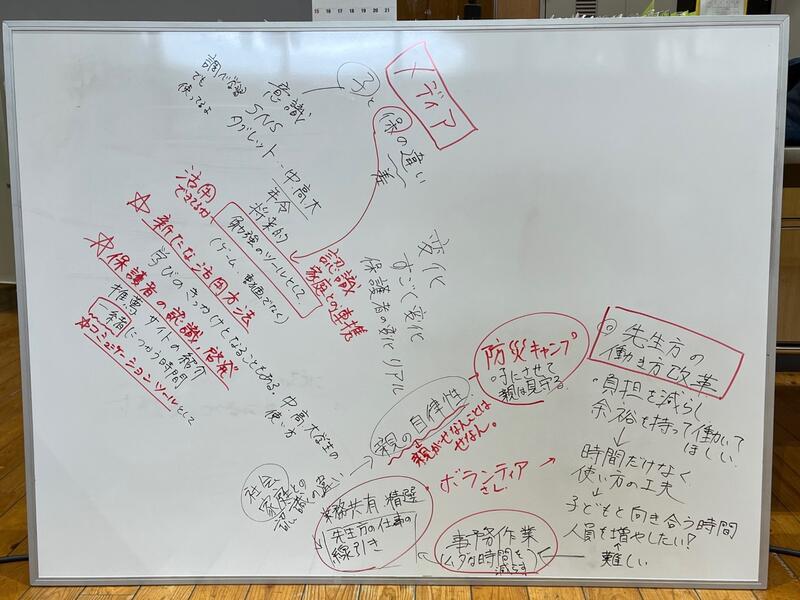 15 16 17 18 19 20 21
メディア
子と
保の違い
差
意識
SNS
タブレット‥中高大
年令
将来的
勉強のツールとして、
(ゲーム、動画でなく)
調べ学習
でも
使ってるよ
活用
できてるか
認識
家庭との連携
☆新たな活用方法
学びのきっかけとなることもある。
☆保護者の認識,啓発
推薦サイトの紹介
一緒につかう時間
☆コミュニケーションツールとして
中高大学生の
使い方
変化
すごく変化
保護者の変化 リアル
社会
家庭との
認識の違い
親の自律性
親がせなんことは
せなん。
防災キャンプ
親は見守る。
◎先生方の
働き方改革
・負担を減らし
余裕を持って働いて
ほしい
↓
時間だけなく
使い方の工夫
↓
子どもと向き合う時間
人員を増やしたい?
↑
難しい
・ボランティア →
さん
業務共有 精選
先生方の仕事の
線引き
事務作業
(ムダな時間を
減らす)